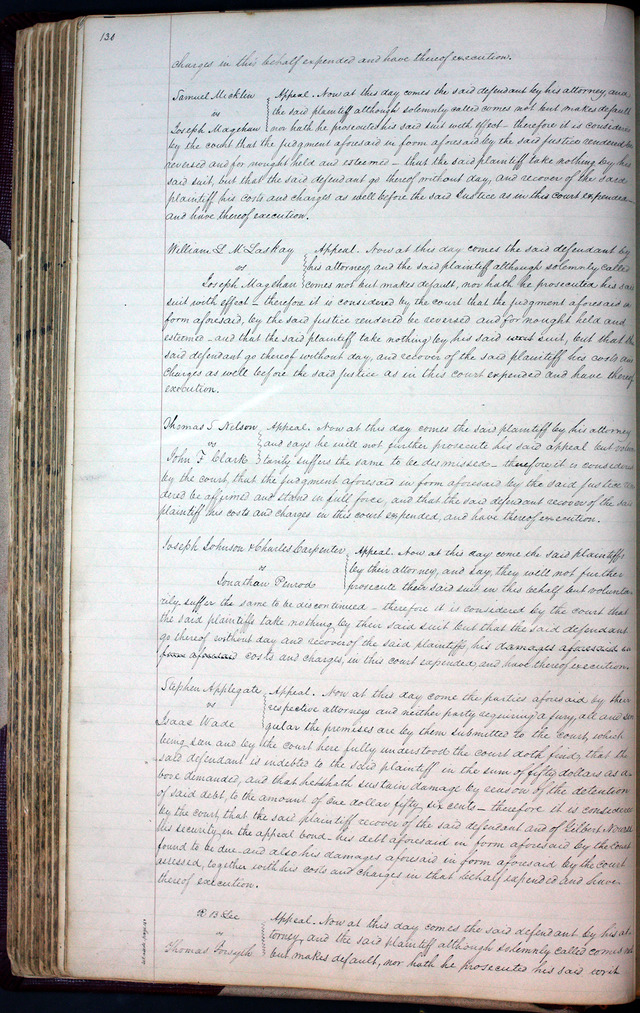 130
charges in this behalf expended and have thereof execution.
Samuel Micklin Appeal. Now at this day comes the said defendant by his attorney, and
vs the said plaintiff although solemnly called comes not but makes default
Joseph Magehan nor hath he prosecuted his said suit with effect – therefore it is considered
by the court that the judgment aforesaid in form aforesaid by the said justice rendered be
reversed and for nought held and esteemed – that the said plaintiff take nothing by his
said suit, but that the said defendant go thereof without day, and recover of the said
plaintiff his costs and charges as well before the said Justice as in this court expended –
and have thereof execution.
William L McLaskay Appeal. Now at this day comes the said defendant by
vs his attorney, and the said plaintiff although solemnly called
Joseph Magehan comes not but makes default, nor hath he prosecuted his said
suit with effect – therefore it is considered by the court that the judgment aforesaid in
form aforesaid, by the said justice rendered be reversed and for nought held and
esteemed – and that the said plaintiff take nothing by his said suit, but that the
said defendant go thereof without day, and recover of the said plaintiff his costs and
charges as well before the said Justice as in this court expended and have thereof
execution.
Thomas S Nelson Appeal. Now at this day comes the said plaintiff by his attorney
vs and says he will not further prosecute his said appeal but volun
John F Clark tarily suffers the same to be dismissed – therefore it is considered
by the court that the judgment aforesaid in form aforesaid by the said justice ren
dered be affirmed and stand in full force, and that the said defendant recover of the said
plaintiff his costs and charges in this court expended, and have thereof execution.
Joseph Johnson & Charles Carpenter Appeal. Now at this day come the said plaintiffs
vs by their attorney, and say, they will not further
Jonathan Penrod prosecute their said suit in this behalf but volunta
rily suffer the same to be discontinued – therefore it is considered by the court that
the said plaintiffs take nothing by their said suit but that the said defendant
go thereof without day and recover of the said plaintiffs, his damages aforesaid in
form aforesaid costs and charges, in this court expended, and have thereof execution.
Stephen Applegate Appeal. Now at this day come the parties aforesaid by their
vs respective attorneys and neither party requiring a jury, all and sin
Isaac Wade gular the premises are by them submitted to the court, which
being seen and by the court here fully understood the court doth find, that the
said defendant is indebted to the said plaintiff in the sum of fifty dollars as a
bove demanded, and that he hath sustain damage by reason of the detention
of said debt, to the amount of One dollar fifty six cents – therefore it is considered
by the court, that the said plaintiff recover of the said defendant and of Gilbert
his security in the appeal bond – his debt aforesaid in form aforesaid by the court
found to be due – and also his damages aforesaid in form aforesaid by the court
assessed, together with his costs and charges in that behalf expended and have
thereof execution.
R B Lee Appeal. Now at this day comes the said defendant by his at
vs torney, and the said plaintiff although solemnly called comes not
Thomas Forsyth but makes default, nor hath he prosecuted his said writ